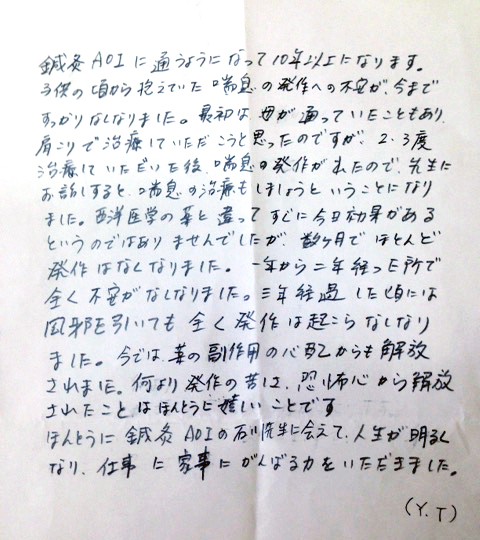 鍼灸AOIに通うようになって10年以上になります。
子供の頃から抱えていた喘息の発作への不安が、今まで
すっかりなしなりました。最初は母が通っていたこともあり、
肩こりで治療していただこうと思ったのですが、2、3度
治療していただいた後、喘息の発作が出たので、先生に
お話しすると、喘息の治療もしましょうということになり
ました。西洋医学の薬と違ってすぐに今日効果がある
というのではありませんでしたが、数ヶ月でほとんど
発作はなくなりました。一年から二年経った所で
全く不安がなしなりました。三年経過した頃には
風邪を引いても全く発作は起こらなしなり
ました。今では、薬の副作用の心配からも解放
されました。何より発作の苦しさ、恐怖心から解放
されたことはほんとうに嬉しいことです
ほんとうに鍼灸AOIの石川先生に会えて、人生が明るく
なり、仕事に家事にがんばる力をいただきました。
(Y.T)